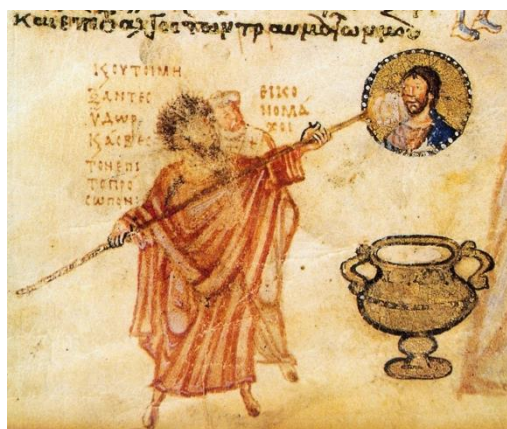 καιεπιτοαλγοςτωντραυμάτωνμου
ΚΟΥΤΟΙΜΗ
ΞΑΝΤΕϹ
ΥΔΩΡ
ΚΑϹΒΕϹ
ΤΟΝΕΠΙ
ΤΟΠΡΟ
ϹΩΠΟΝ
ΕΙΚΟ
ΝΟΜΑ
ΧΟΙ